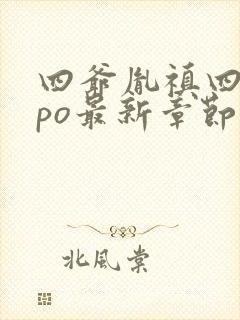 四爷胤禛四
po最新章节
北風棠